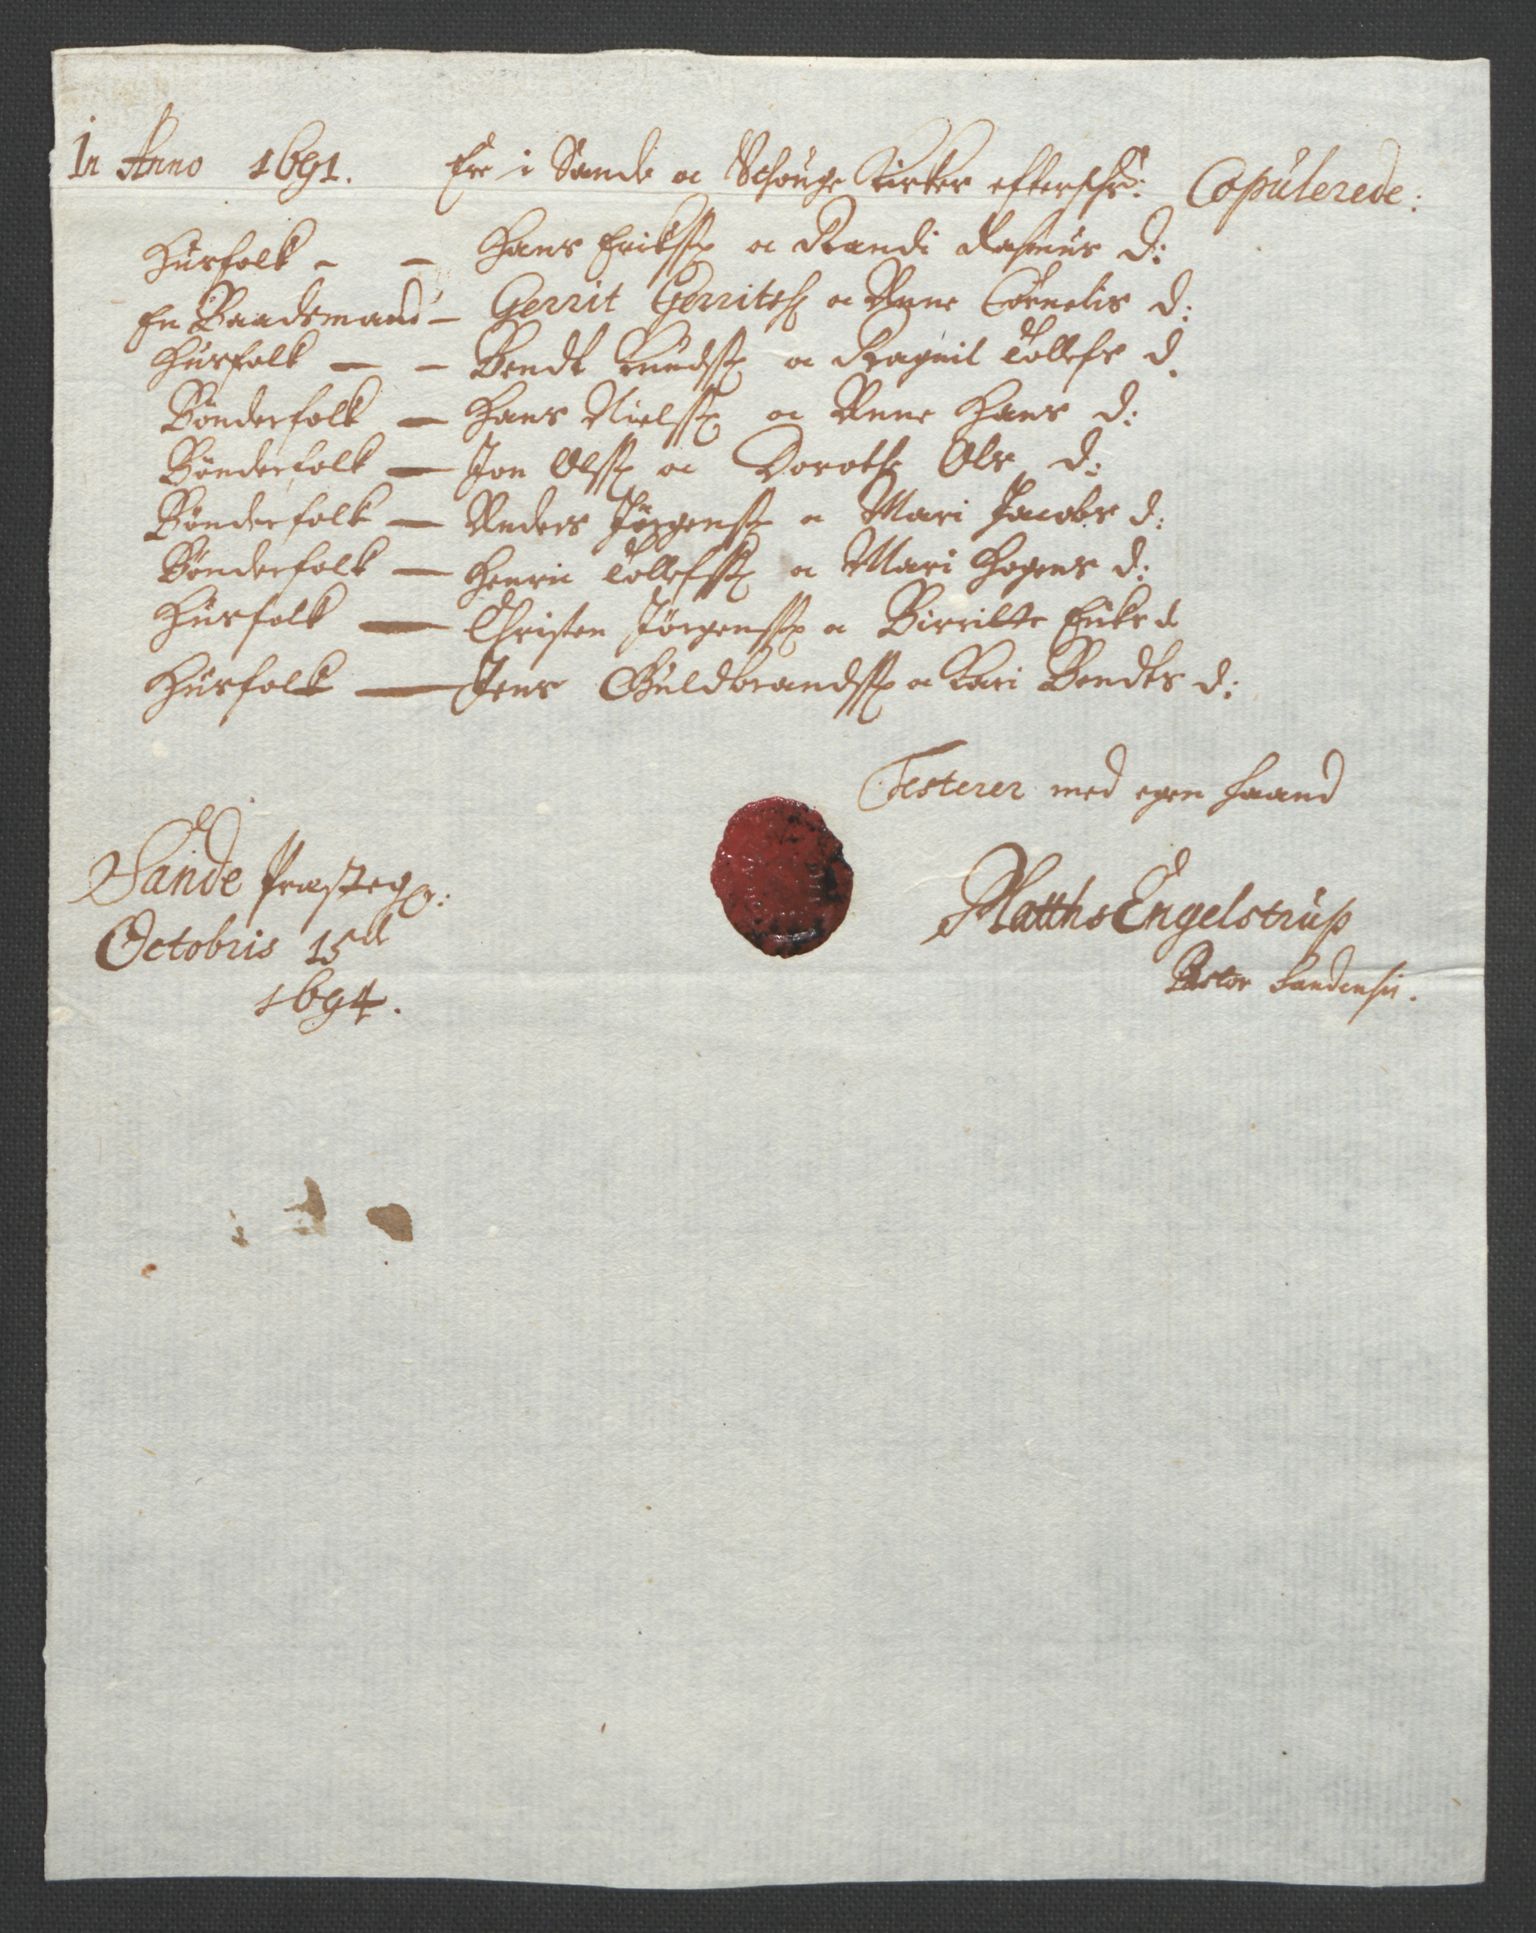 In Anno 1691. Ere i Sande oc Schouge Kirker efterschr: Copulerede:
Husfolk - - Hans Erikss oc Randi Rasmus D:
En Baadsmand - Gerrit Gerritss oc Anne Cornelis D:
Husfolk - - Bendt Knudss oc Ragnil Tollefs D.
Bønderfolk - Hans Nielss oc Anne Hans D:
Bønderfolk - Jon Olss oc Dorothe Ols D:
Bønderfolk - Anders Jørgenss oc Mari Jacobs D:
Bønderfolk - Henric Tollefss oc Mari Hogens D:
Husfolk - Christen Jørgenss oc Birritte Eriks d
Husfolk - Jens Guldbrandss oc Kari Bendts D:
Testerer med egen haand
Sande Præsteg:
Octobris 15d
1694.
Matths Engelstrup
Pastor Sandensis.